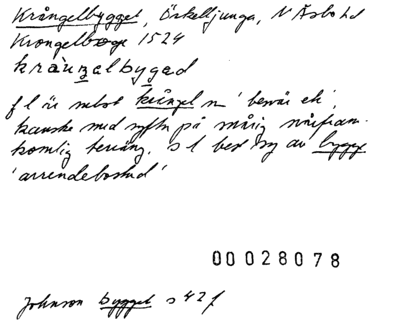 Krångelbygget, Örkelljunga, N Åsbo hd
Krongelböge 1524
kràuzalbyged
f l är subst krångel n 'besvär etc',
kanske med syftn på snårig svårfram-
komlig terräng. s l best sg av bygge
'arrendebostad'
00028078
Johnson bygget s 42 f